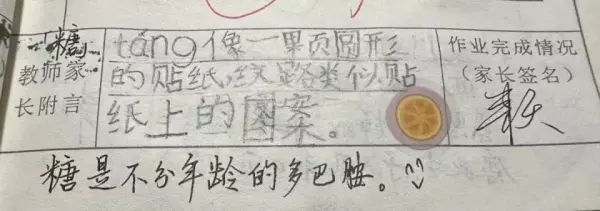 糖
教师家
长附言
táng像一颗圆形
的贴纸,纹路类似贴
纸上的图案。
作业完成情况
（家长签名）
糖是不分年龄的多巴胺。